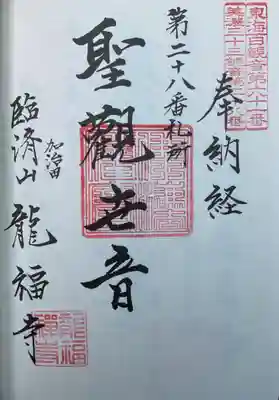 東海百観音第六十一番
美濃三十三観音第二十八番
奉納経
第二十八番札所
聖觀世音
加治田
臨済山龍福寺
龍福禅寺